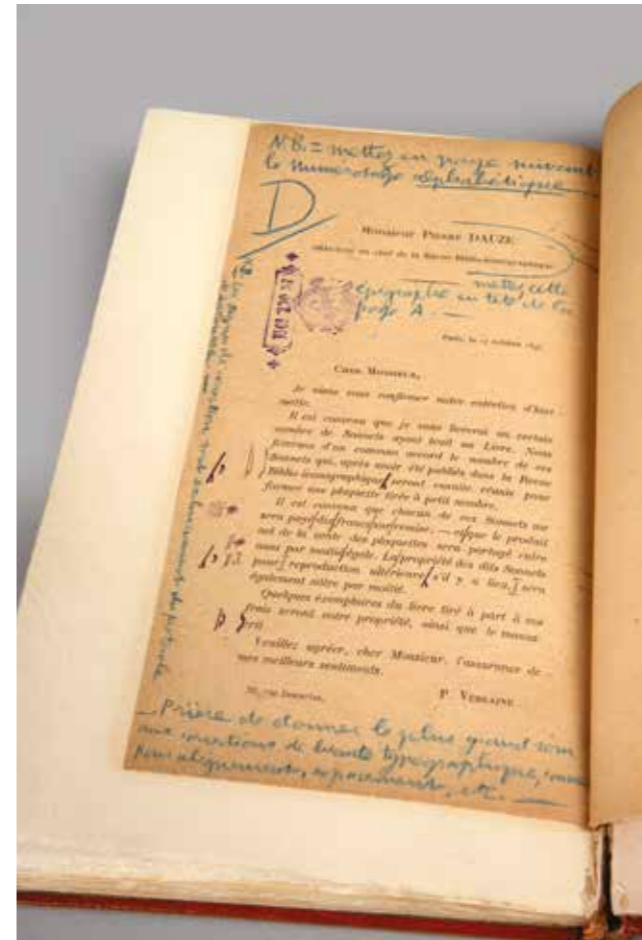 N.B. = mettez en page suivant
le numérotage alphabétique
D
Monsieur Pierre DAUZE
en chef de la Revue Biblio-iconographique
mettez cette
épigraphe en tête de la
page A. —
Paris, le
Cher Monsieur,
Je viens vous confirmer notre entretien d'hier
matin.
Il est convenu que je vous livrerai un certain
nombre de Sonnets ayant trait au Livre. Nous
fixerons d'un commun accord le nombre de ces
Sonnets qui, après avoir été publiés dans la Revue
Biblio-iconographique seront ensuite réunis pour
former une plaquette tirée à petit nombre.
Il est convenu que chacun de ces Sonnets me
sera payé dix francs, sur remise, — et que le produit
net de la vente des plaquettes sera partagé entre
nous par moitié égale. La propriété des dits Sonnets
pour reproduction ultérieure s'il y a lieu, sera
également nôtre par moitié.
Quelques exemplaires du livre tiré à part à vos
frais seront votre propriété, ainsi que le manus-
crit
Veuillez agréer, cher Monsieur, l'assurance de
mes meilleurs sentiments.
P. Verlaine
— Prière de donner le plus grand soin
aux corrections de beauté typographique, comme
alignements, espacements, etc. —